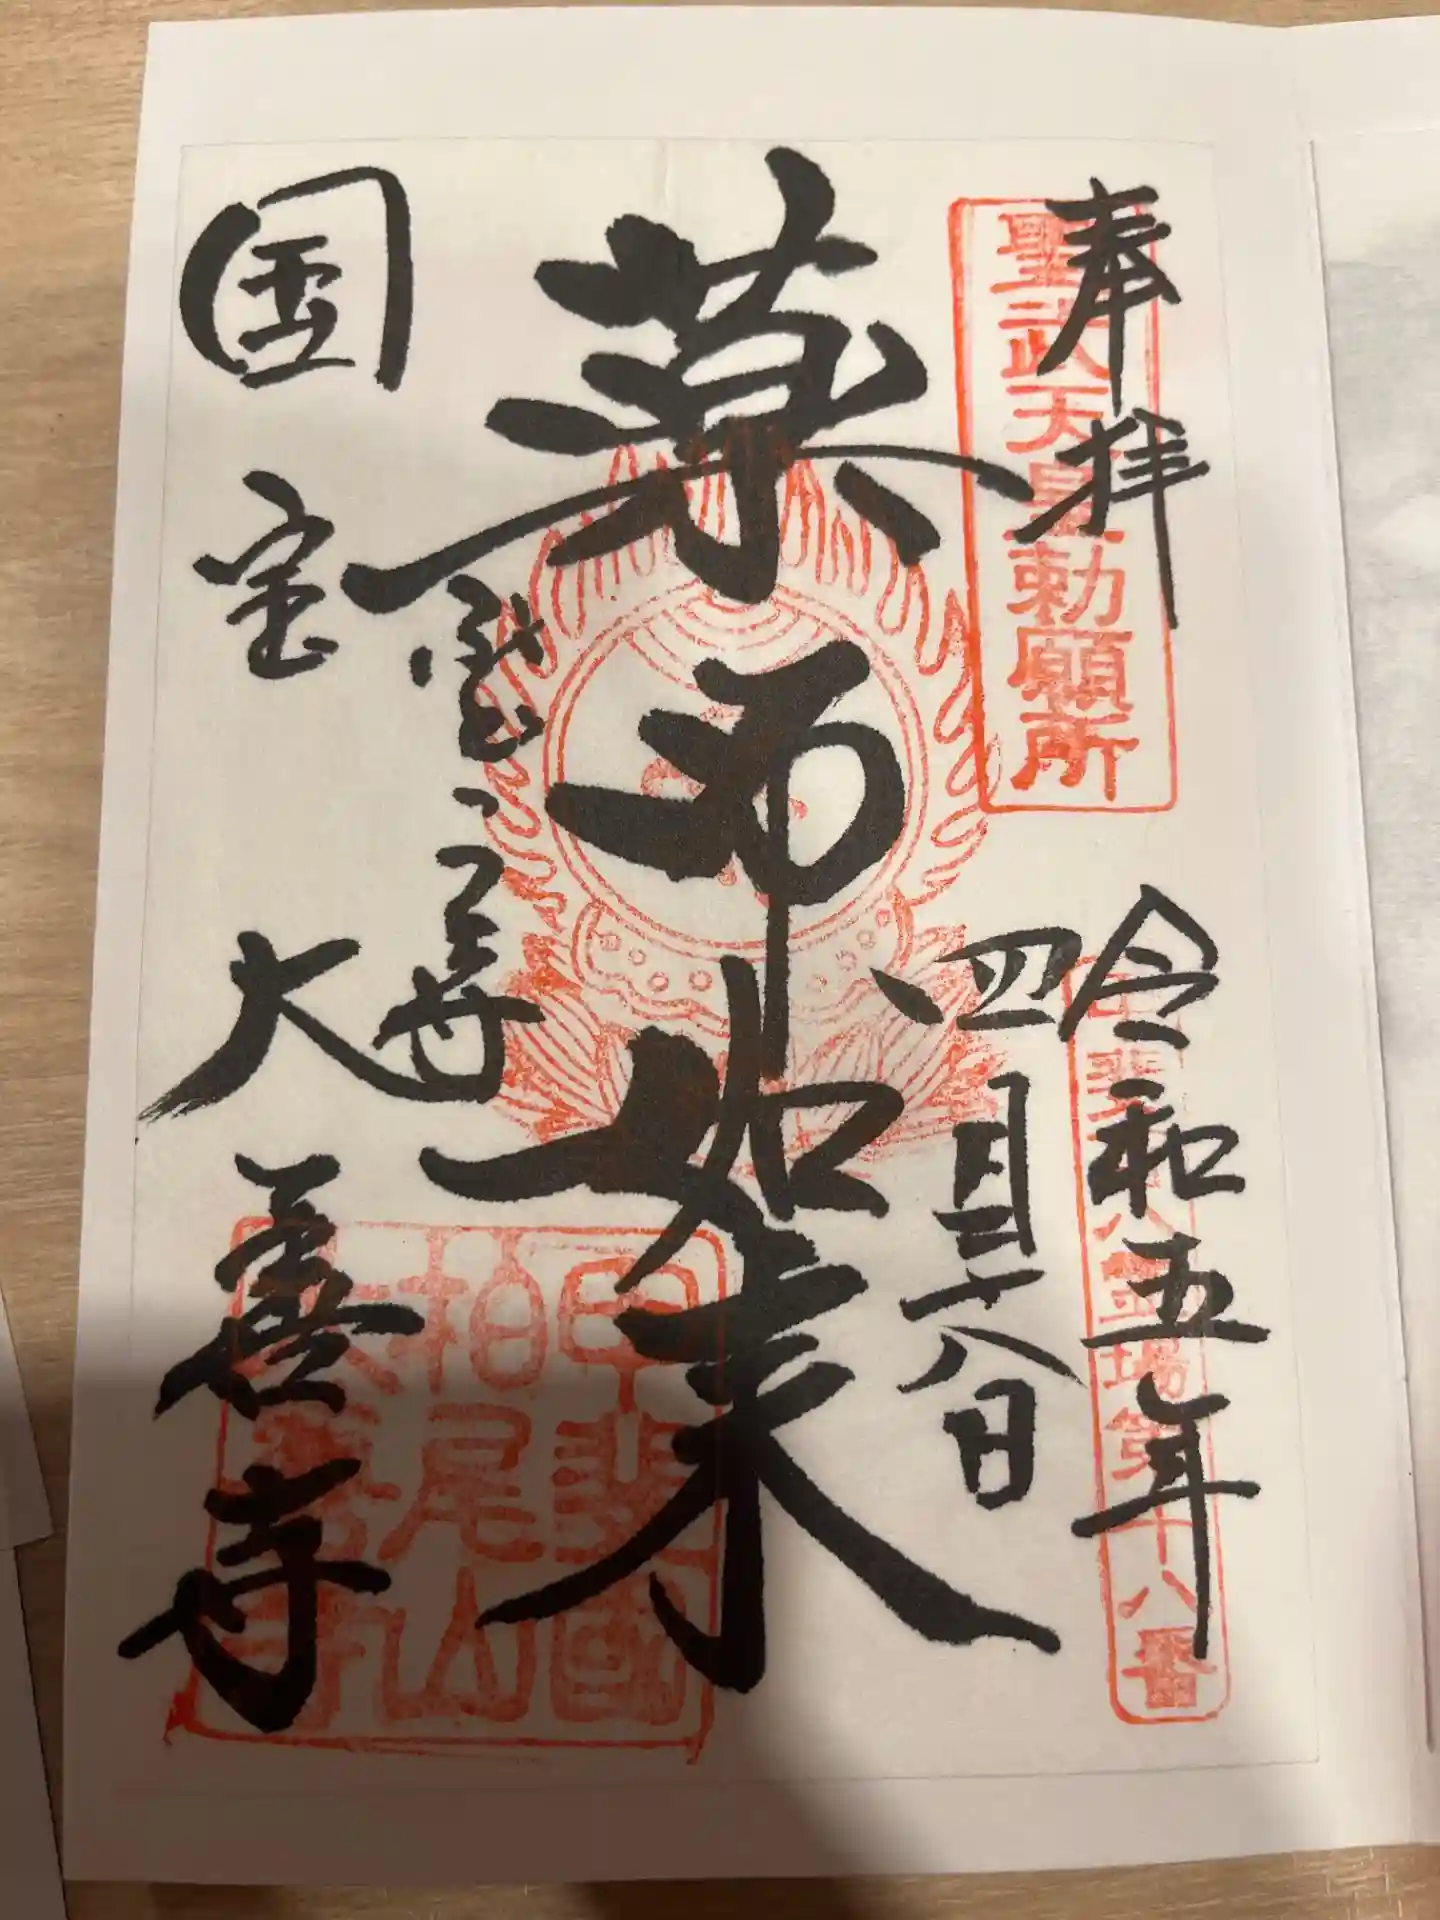 奉拝
聖武天皇勅願所
令和五年
四月二十八日
霊場第十八番
薬師如来
国宝
大善寺
甲斐國
柏尾山
大善寺